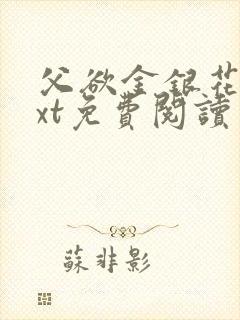 父欲金銀花
xt免費閱讀
蘇非影